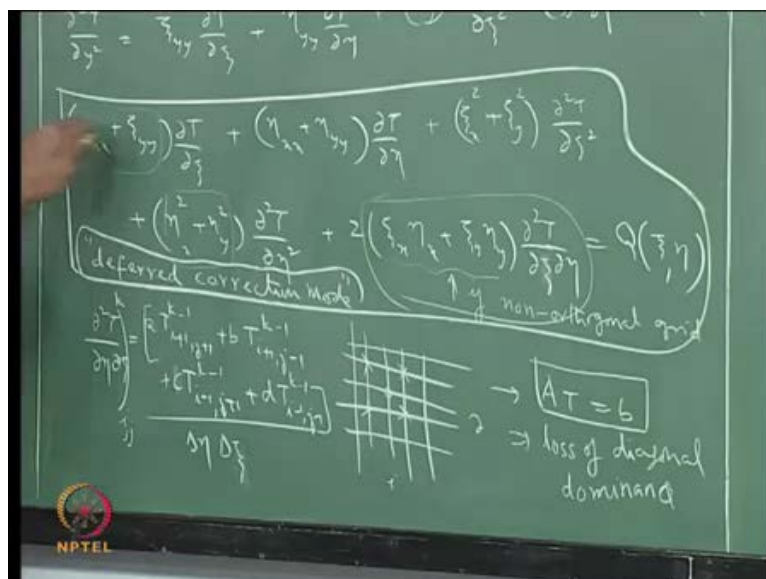 ∂²T/∂y² = ξ_yy ∂T/∂ξ + η_yy ∂T/∂η
+ ξ_yy) ∂T/∂ξ + (η_xx + η_yy) ∂T/∂η + (ξ_x² + ξ_y²) ∂²T/∂ξ²
+ (η_x² + η_y²) ∂²T/∂η² + 2(ξ_x η_x + ξ_y η_y) ∂²T/∂ξ∂η = Q(ξ, η)
"deferred correction mode"
↑ if non-orthogonal grid
∂²T/∂η∂η)^k_ij = [a T^{k-1}_{i+1,j+1} + b T^{k-1}_{i+1,j-1}
+ c T^{k-1}_{i-1,j+1} + d T^{k-1}_{i-1,j-1}]
Δη Δξ
→ AT = b
⇒ loss of diagonal
dominance
NPTEL